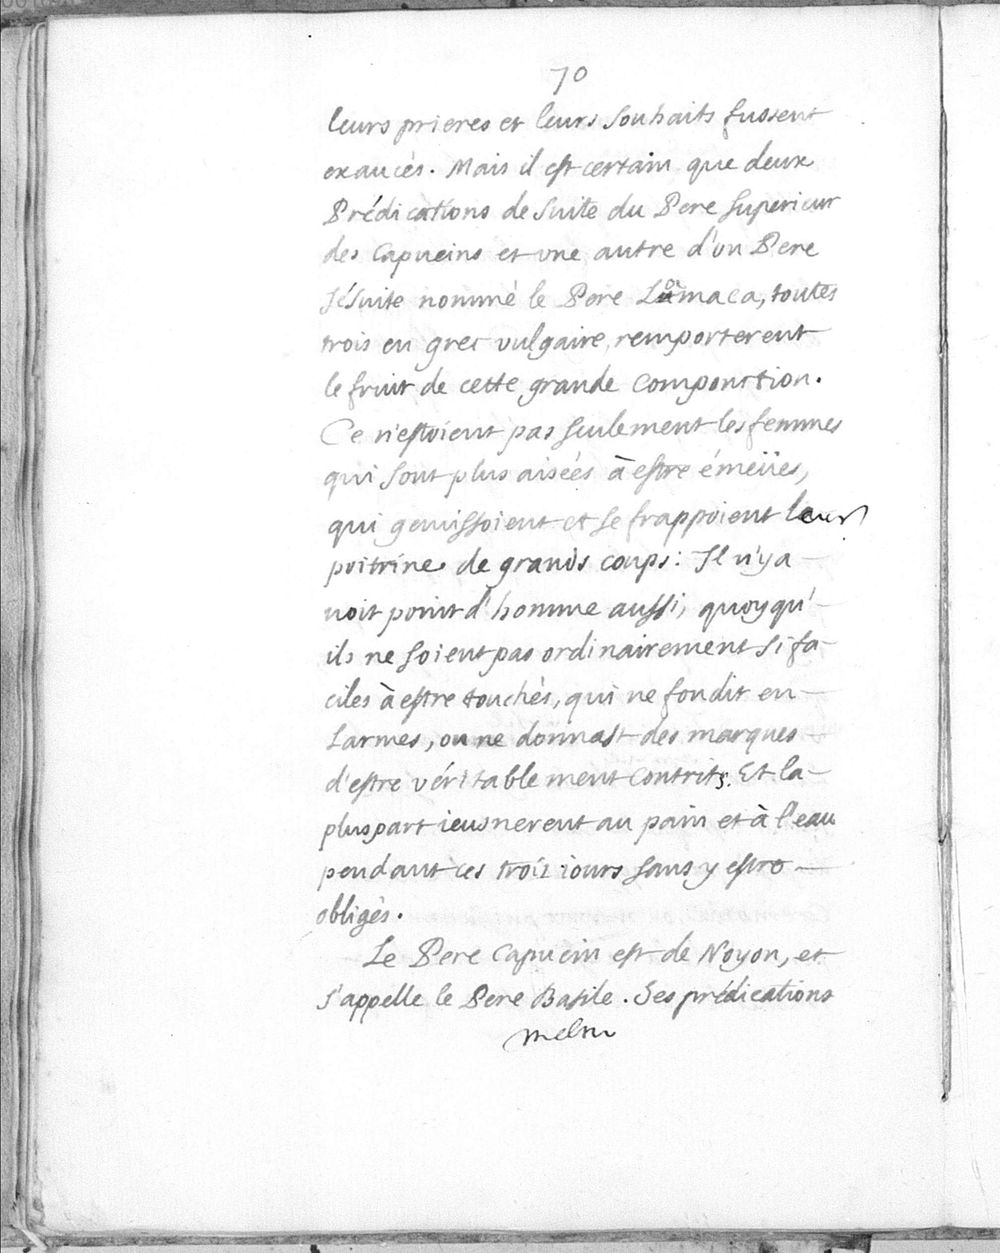 70
leurs prieres et leurs souhaits fussent
exaucés. Mais il est certain que deux
Prédications de suite du Pere superieur
des Capucins et une autre d'un Pere
Jésuite nommé le Pere Lomaca, toutes
trois en grec vulgaire, remporterent
le fruit de cette grande componction.
Ce n'estoient pas seulement les femmes
qui sont plus aisées à estre émeües,
qui gemissoient et se frappoient leur
poitrine de grands coups: Il n'ya
voit point d'homme aussi, quoyqu'
ils ne soient pas ordinairement si fa
ciles à estre touchés, qui ne fondit en
larmes, ou ne donnast des marques
d'estre véritablement contrits. Et la
pluspart ieusnerent au pain et à l'eau
pendant ces trois iours sans y estre
obligés.
Le Pere Capucin est de Noyon, et
s'appelle le Pere Basile. Ses prédications